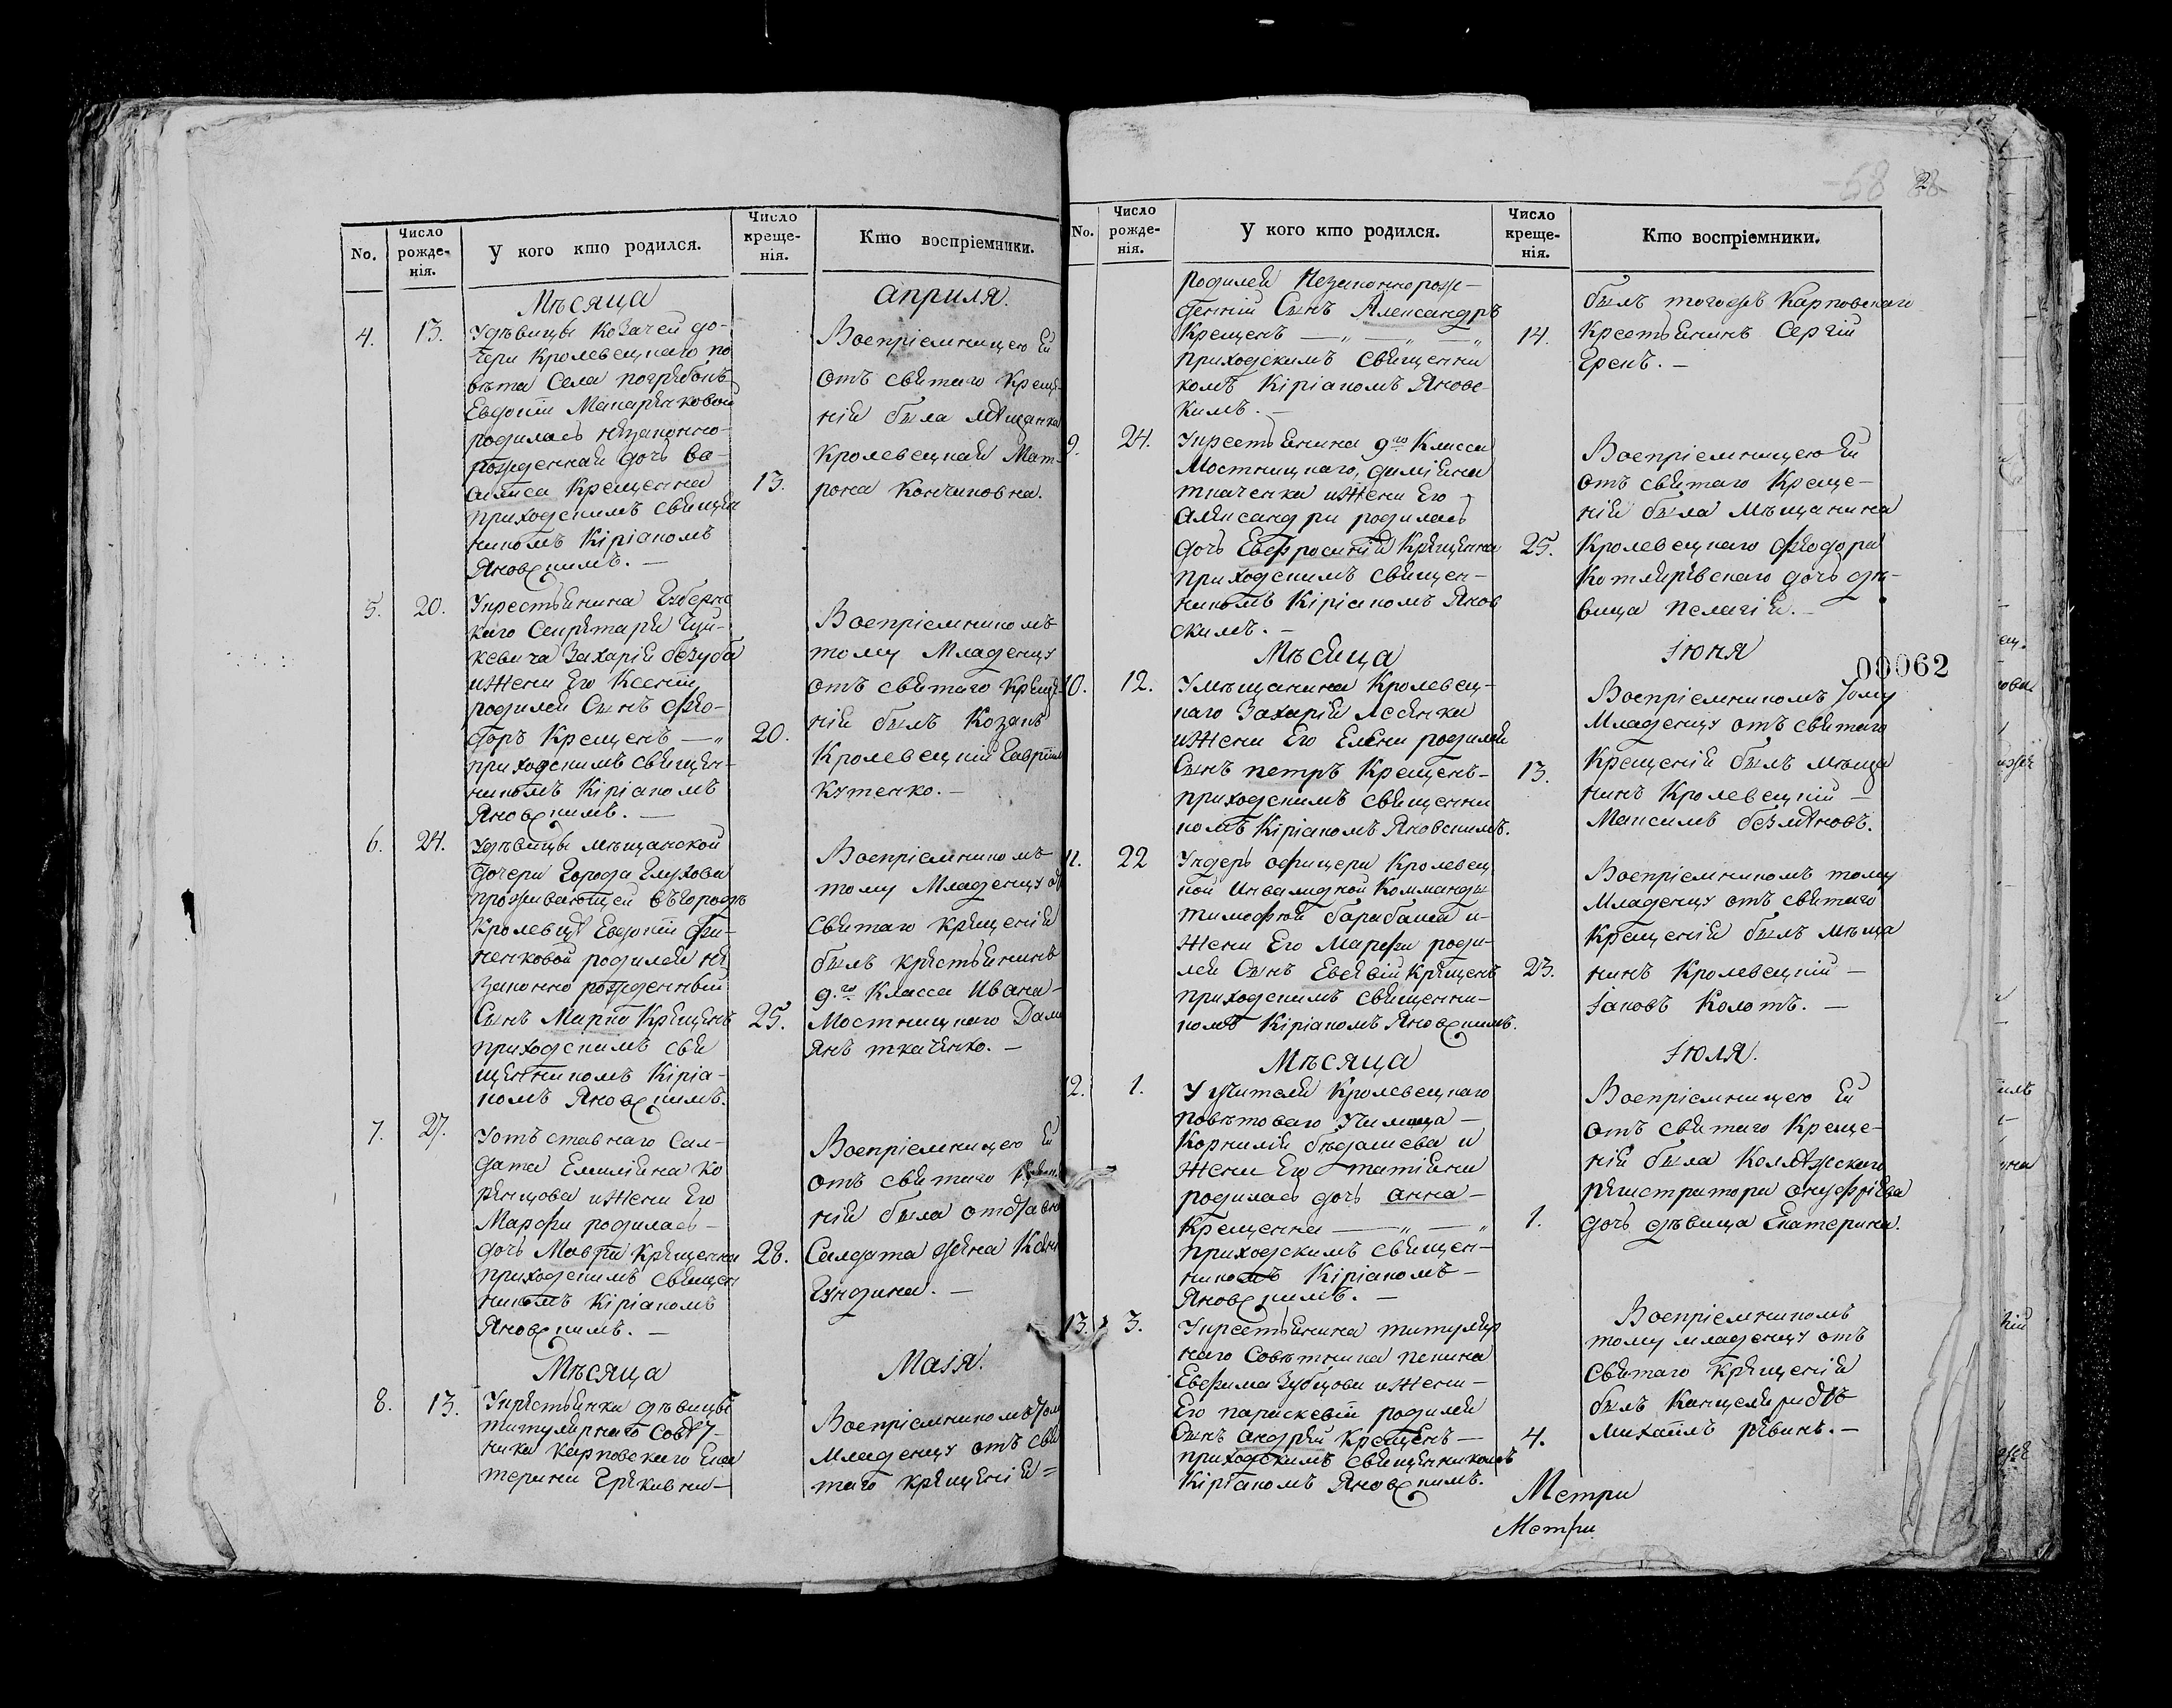 No.
Число рожде-нія.
У кого кто родился.
Число креще-нія.
Кто воспріемники.
Мѣсяца
Априля.
4. 13.
Удѣвицы Козачей до-
чери Кролевецкаго по
вѣта Села погрѣбокъ
Евдокіи Макаренковой
родилась незаконно-
рожденная дочь Ва-
силиса Крещенна
приходскимъ священ
никомъ Киріакомъ
Яновскимъ. —
13.
Воспріемницею Ей
отъ святаго Креще-
нія была мѣщанка
Кролевецкая Мат-
рона
5. 20.
Укрестьянина Губернс
каго Секретаря
Захарія беззуба
ижены Его Ксеніи
родился Сынъ Фео-
доръ Крещенъ — „
приходскимъ священ-
никомъ Киріакомъ
Яновскимъ. —
20.
Воспріемникомъ
тому Младенцу
отъ святаго Креще-
нія былъ Козакъ
Кролевецкій Гавріилъ
Кутенко. —
6. 24.
Удѣвицы мѣщанской
дочери Города Глухова
проживающей въгородѣ
Кролевцѣ Евдокіи
родился не
законно рожденный
Сынъ Марко Крещенъ
приходскимъ свя
щенникомъ Киріа-
комъ Яновскимъ.
25.
Воспріемникомъ
тому Младенцу от
святаго Крещенія
былъ крестьянинъ
9.го Класса Ивана
Мостницкаго Дами
янъ ткаченко. —
7. 27.
Уотъставнаго Сал-
дата Емиліяна Ко
ренцова ижены Его
Марфы родилась —
дочь Мавра Крещенна
приходскимъ священ
никомъ Киріакомъ
Яновскимъ. —
28.
Воспріемницею Ей
отъ святаго Креще
нія была отставн
Салдата жена
Гундина. —
Мѣсяца
Маія.
8. 13.
Укрестьянки дѣвицы
титулярнаго Совѣт-
ника Карповскаго Ека
терины
Воспріемникомъ том
Младенцу отъ свя
таго крещенія =
No.
Число рожде-нія.
У кого кто родился.
Число креще-нія.
Кто воспріемники.
родился Незаконнорож-
денній Сынъ Александръ
Крещенъ — „ — „ — „
приходскимъ священни
комъ Киріакомъ Яновс-
кимъ. —
14.
былъ тогожъ Карповскаго
Крестьянинъ Сергій
9. 24.
Укрестьянина 9го Класса
Мостницкаго, даміяна
ткаченка иЖены Его
Александры родилась
дочь Евфросинія Крещенна
приходскимъ священ-
никомъ Киріакомъ Янов
скимъ. —
25.
Воспріемницею Ей
отъ святаго Креще-
нія была Мѣщанина
Кролевецкаго Феодора
Котляревскаго дочь дѣ-
вица Пелагія. —
Мѣсяца
Іюня
00062
10. 12.
Умѣщанина Кролевец-
каго Захарія Лесенка
ижены Его Елены родился
Сынъ петръ Крещенъ —
приходскимъ священни
комъ Киріакомъ Яновскимъ.
13.
Воспріемникомъ Тому
Младенцу отъ святаго
Крещенія былъ мѣща
нинъ Кролевецкій —
Максимъ
11. 22
Ундеръ офицера Кролевец
кой Инвалидной Комманды
тимофея барабаша и
Жены Его Марфы роди-
лся Сынъ Евсевій Крещенъ
приходскимъ священни-
комъ Киріакомъ Яновскимъ.
23.
Воспріемникомъ тому
Младенцу отъ святаго
Крещенія былъ мѣща
нинъ Кролевецкій —
Іаковъ Колотъ. —
Мѣсяца
Іюля.
12. 1.
Уучителя Кролевецкаго
повѣтоваго Училища —
Корнилія и
Жены Его татіяны
родилась дочь анна —
Крещенна — „ — „
приходскимъ священ-
никомъ Киріакомъ —
Яновскимъ. —
1.
Воспріемницею Ей
отъ святаго Креще-
нія была Коллѣжскаго
регистратора онуфріева
дочь дѣвица Екатерина.
13. 3.
Укрестьянина титуляр
наго Совѣтника пекина
Евфима Зубцова иЖены —
Его параскевіи родился
Сынъ андрей Крещенъ —
приходскимъ священникомъ
Киріакомъ Яновскимъ.
4.
Воспріемникомъ
тому младенцу отъ
святаго крещенія
былъ Канцеляристъ
Михаилъ рѣвинъ. —
Метри
Метри